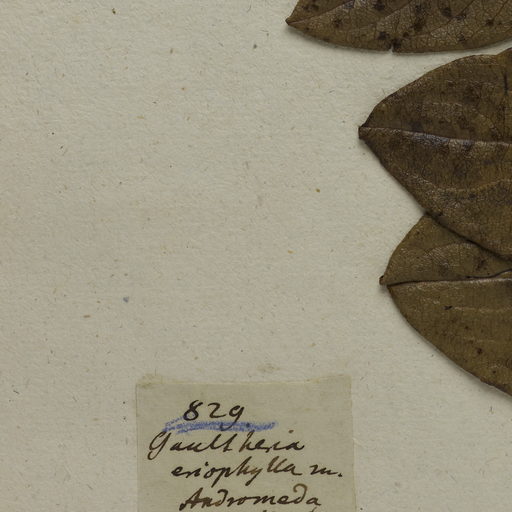 829.
Gaultheria
eriophylla m.
Andromeda